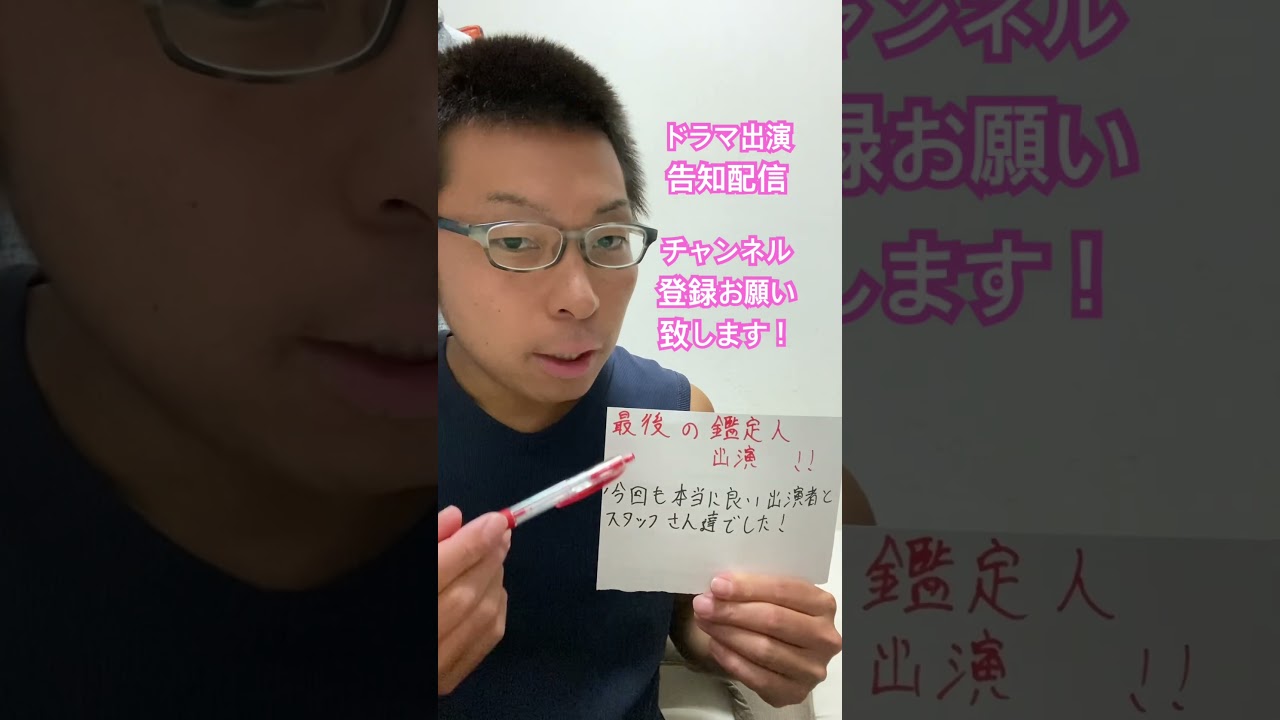 ドラマ出演
告知配信
チャンネル
登録お願い
致します！
最後の鑑定人
出演 !!
今回も本当に良い出演者と
スタッフさん達でした!
チャンネル
録お願い
します！
鑑定人
出演 !!